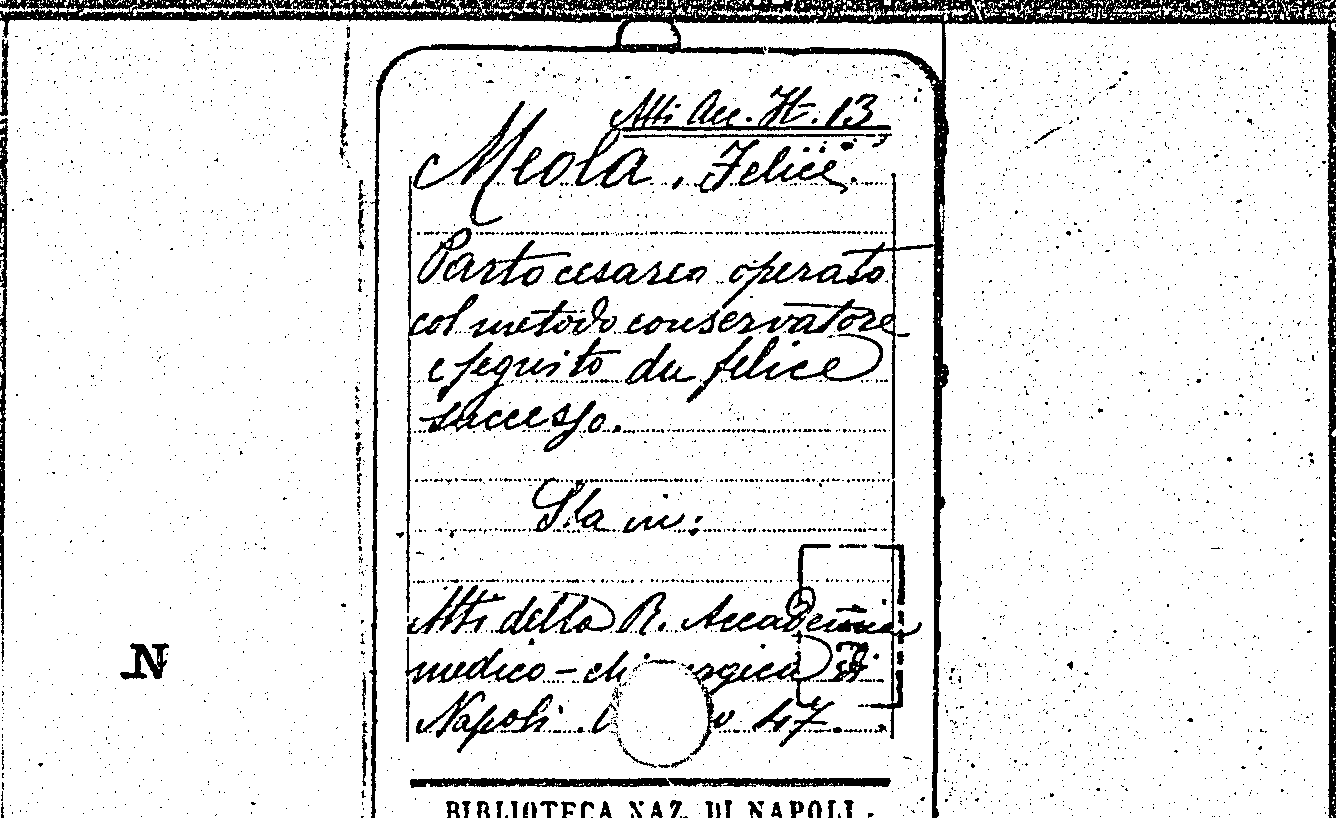 Atti Acc. H. 13
Meola, Felice.
Parto cesareo operato
col metodo conservatore
e seguito da felice
successo.
Sta in:
Atti della R. Accademia
medico-chi rgica di
Napoli. 47.
N
BIBLIOTECA NAZ. DI NAPOLI.